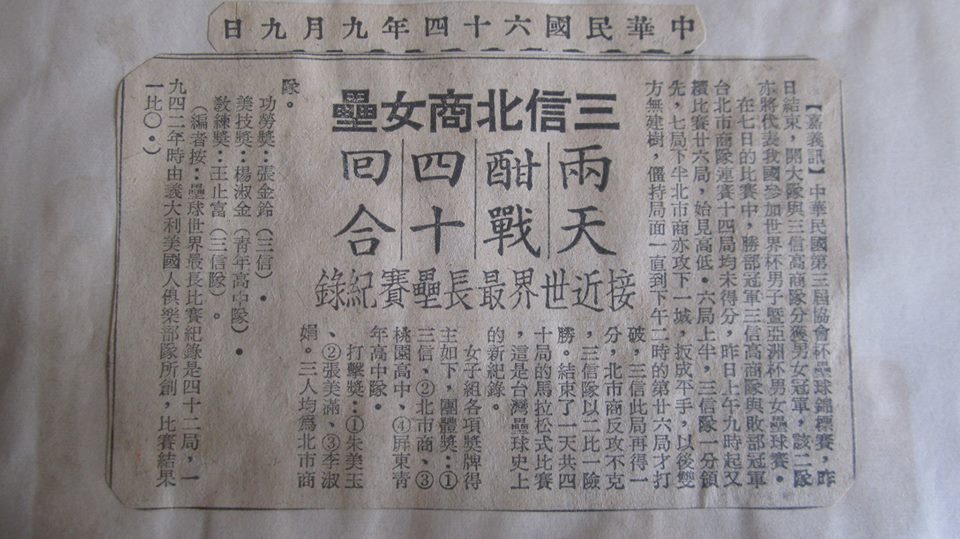 中華民國六十四年九月九日
三信北商女壘
兩天
酣戰
四十
回合
接近世界最長壘賽紀錄
【嘉義訊】中華民國第三屆協會杯壘球錦標賽，昨
日結束，開大隊與三信高商隊分獲男女冠軍，該二隊
亦將代表我國參加世界杯男子暨亞洲杯男女壘球賽。
在七日的比賽中，勝部冠軍三信高商隊與敗部冠軍
台北市商隊連賽十四局均未得分，昨日上午九時起又
續比賽廿六局，始見高低。六局上半，三信隊一分領
先，七局下半北市商亦攻下一城，扳成平手，以後雙
方無建樹，僵持局面一直到下午二時的第廿六局才打
破，三信此局再得一
分，北市商反攻不克
，三信隊以二比一險
勝。結束了一天共四
十局的馬拉松式比賽
，這是台灣壘球史上
的新紀錄。
女子組各項獎牌得
主如下，團體獎：①
三信、②北市商、③
桃園高中、④屏東青
年高中隊。
打擊獎：①朱美玉
、②張美滿、③李淑
娟。三人均爲北市商
隊。
功勞獎：張金鈴（三信）。
美技獎：楊淑金（青年高中隊）。
教練獎：王止富（三信隊）。
（編者按：壘球世界最長比賽紀錄是四十二局，一
九四二年時由義大利美國人俱樂部隊所創，比賽結果
一比〇。）